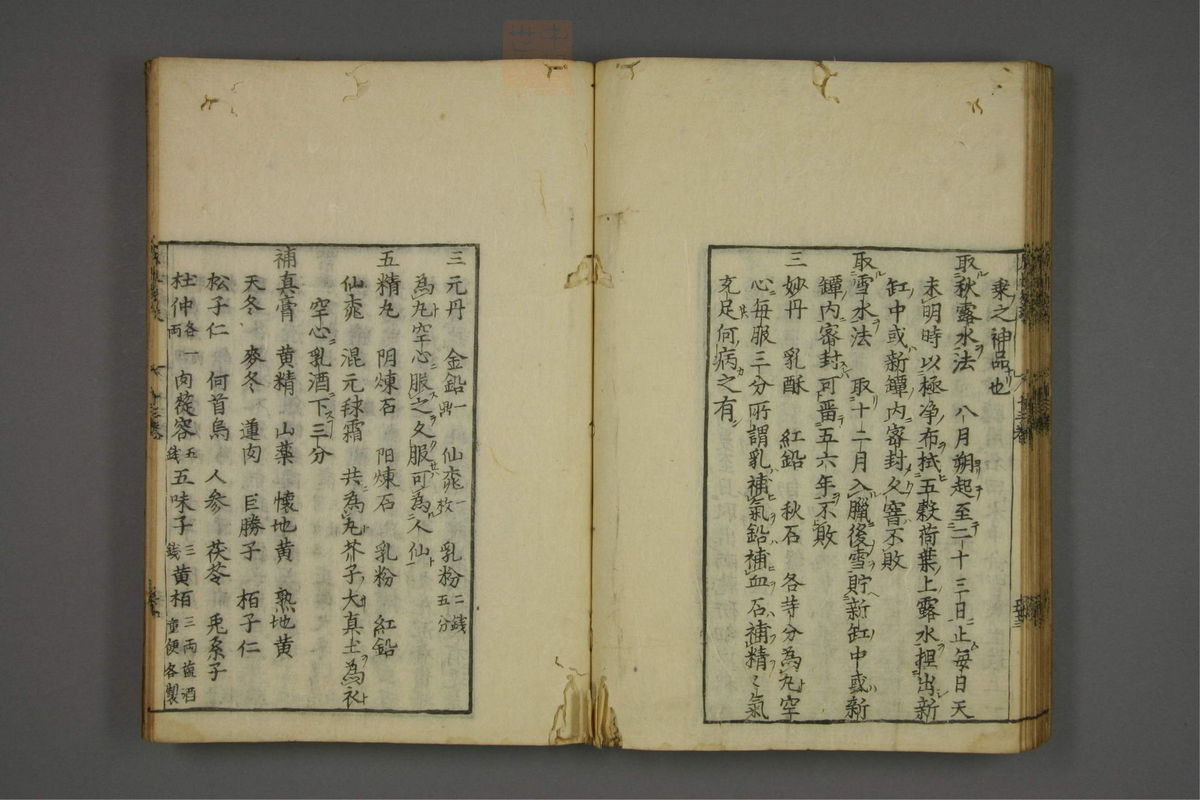 乗之神品也
取秋露水法　八月朔起至二十三日止毎日天
未明時以極浄布拭五穀荷葉上露水捏出新
缸中或新罈内密封久窨不敗
取雪水法　取十二月入臘後雪貯新缸中或新
罈内密封可畱五六年不敗
三妙丹　乳酥　紅鉛　秋石　各等分為丸空
心毎服三分所謂乳補氣鉛補血石補精〻氣
充足何病之有
三元丹　金鉛一鼎　仙桃一枚　乳粉二錢五分
為丸空心服之久服可為人仙
五精丸　阴煉石　阳煉石　乳粉　紅鉛
仙桃　混元毬霜　共為丸芥子大真土為衣
空心乳酒下三分
補真膏　黄精　山藥　懷地黄　熟地黄
天冬　麥冬　蓮肉　巨勝子　栢子仁
松子仁　何首烏　人参　茯苓　兎系子
杜仲各一両　肉蓯容五錢　五味子三錢　黄栢三両塩酒童便各製